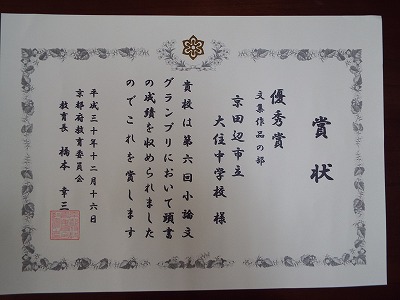 賞状
優秀賞
文集作品の部
京田辺市立
大住中学校 様
貴校は第六回小論文
グランプリにおいて頭書
の成績を収められました
のでこれを賞します
平成三十年十二月十六日
京都府教育委員会
教育長 橋本 幸三